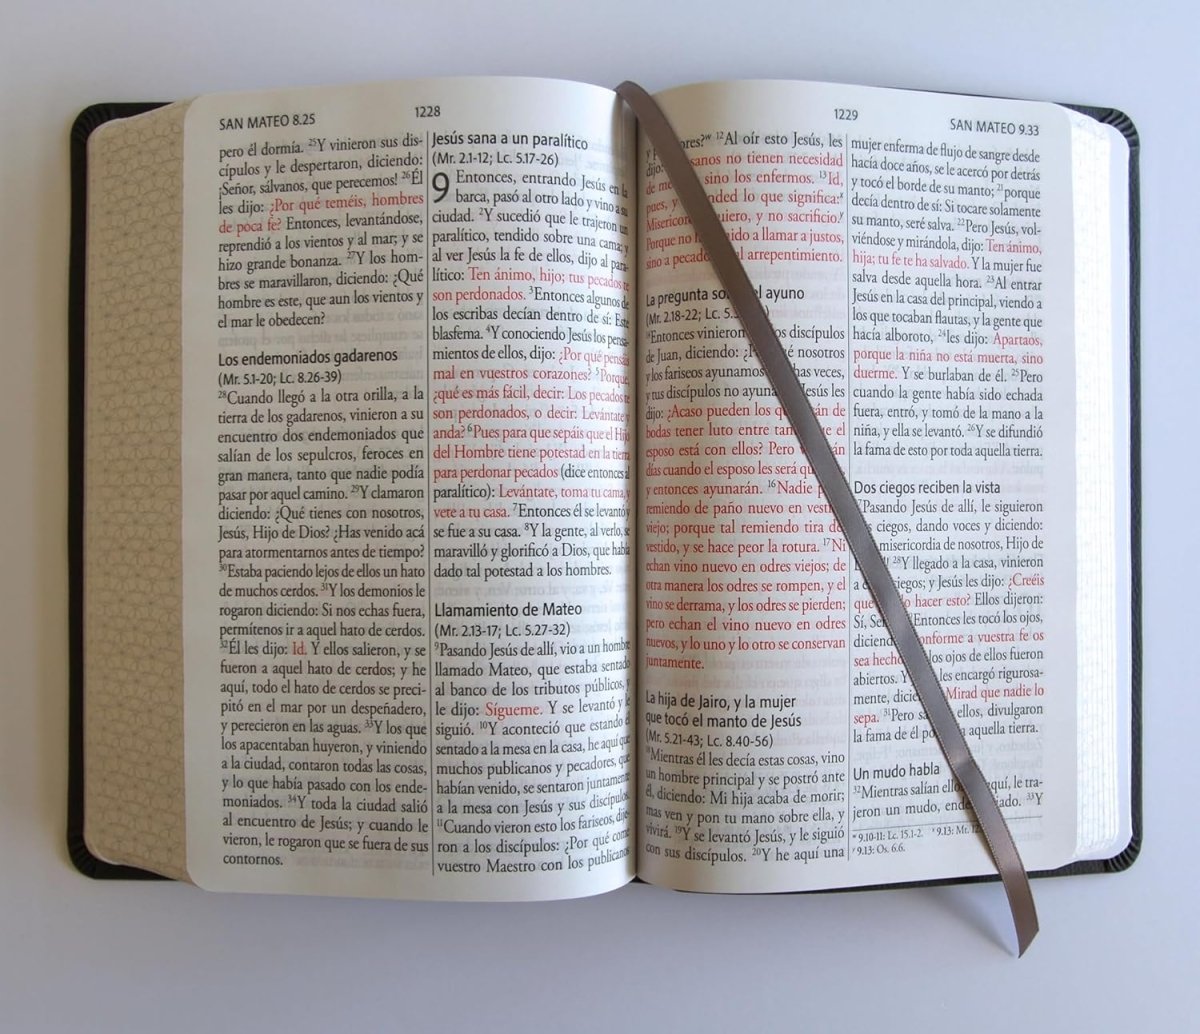 SAN MATEO 8.25
1228
pero él dormía. 25Y vinieron sus dis-
cípulos y le despertaron, diciendo:
¡Señor, sálvanos, que perecemos! 26Él
les dijo: ¿Por qué teméis, hombres
de poca fe? Entonces, levantándose,
reprendió a los vientos y al mar; y se
hizo grande bonanza. 27Y los hom-
bres se maravillaron, diciendo: ¿Qué
hombre es este, que aun los vientos y
el mar le obedecen?
Los endemoniados gadarenos
(Mr. 5.1-20; Lc. 8.26-39)
28Cuando llegó a la otra orilla, a la
tierra de los gadarenos, vinieron a su
encuentro dos endemoniados que
salían de los sepulcros, feroces en
gran manera, tanto que nadie podía
pasar por aquel camino. 29Y clamaron
diciendo: ¿Qué tienes con nosotros,
Jesús, Hijo de Dios? ¿Has venido acá
para atormentarnos antes de tiempo?
30Estaba paciendo lejos de ellos un hato
de muchos cerdos. 31Y los demonios le
rogaron diciendo: Si nos echas fuera,
permítenos ir a aquel hato de cerdos.
32Él les dijo: Id. Y ellos salieron, y se
fueron a aquel hato de cerdos; y he
aquí, todo el hato de cerdos se preci-
pitó en el mar por un despeñadero,
y perecieron en las aguas. 33Y los que
los apacentaban huyeron, y viniendo
a la ciudad, contaron todas las cosas,
y lo que había pasado con los ende-
moniados. 34Y toda la ciudad salió
al encuentro de Jesús; y cuando le
vieron, le rogaron que se fuera de sus
contornos.
Jesús sana a un paralítico
(Mr. 2.1-12; Lc. 5.17-26)
9 Entonces, entrando Jesús en la
barca, pasó al otro lado y vino a su
ciudad. 2Y sucedió que le trajeron un
paralítico, tendido sobre una cama; y
al ver Jesús la fe de ellos, dijo al para-
lítico: Ten ánimo, hijo; tus pecados te
son perdonados. 3Entonces algunos de
los escribas decían dentro de sí: Este
blasfema. 4Y conociendo Jesús los pensa-
mientos de ellos, dijo: ¿Por qué pensáis
mal en vuestros corazones? 5Porque,
¿qué es más fácil, decir: Los pecados te
son perdonados, o decir: Levántate y
anda? 6Pues para que sepáis que el Hijo
del Hombre tiene potestad en la tierra
para perdonar pecados (dice entonces al
paralítico): Levántate, toma tu cama, y
vete a tu casa. 7Entonces él se levantó y
se fue a su casa. 8Y la gente, al verlo, se
maravilló y glorificó a Dios, que había
dado tal potestad a los hombres.
Llamamiento de Mateo
(Mr. 2.13-17; Lc. 5.27-32)
9Pasando Jesús de allí, vio a un hombre
llamado Mateo, que estaba sentado
al banco de los tributos públicos, y
le dijo: Sígueme. Y se levantó y le
siguió. 10Y aconteció que estando él
sentado a la mesa en la casa, he aquí que
muchos publicanos y pecadores, que
habían venido, se sentaron juntamente
a la mesa con Jesús y sus discípulos.
11Cuando vieron esto los fariseos, dije-
ron a los discípulos: ¿Por qué come
vuestro Maestro con los publicanos
1229
SAN MATEO 9.33
y ores?w 12Al oír esto Jesús, les
dijo: sanos no tienen necesidad
de sino los enfermos. 13Id,
pues, y lo que significa:x
quiero, y no sacrificio.y
Porque no a llamar a justos,
sino a al arrepentimiento.
La pregunta el ayuno
(Mr. 2.18-22; Lc.
14Entonces vinieron los discípulos
de Juan, diciendo: nosotros
y los fariseos ayunamos veces,
y tus discípulos no Jesús les
dijo: ¿Acaso pueden los de
bodas tener luto entre el
esposo está con ellos? Pero
días cuando el esposo les será
y entonces ayunarán. 16Nadie
remiendo de paño nuevo en
viejo; porque tal remiendo tira
vestido, y se hace peor la rotura. 17Ni
echan vino nuevo en odres viejos; de
otra manera los odres se rompen, y el
vino se derrama, y los odres se pierden;
pero echan el vino nuevo en odres
nuevos, y lo uno y lo otro se conservan
juntamente.
La hija de Jairo, y la mujer
que tocó el manto de Jesús
(Mr. 5.21-43; Lc. 8.40-56)
18Mientras él les decía estas cosas, vino
un hombre principal y se postró ante
él, diciendo: Mi hija acaba de morir;
mas ven y pon tu mano sobre ella, y
vivirá. 19Y se levantó Jesús, y le siguió
con sus discípulos. 20Y he aquí una
mujer enferma de flujo de sangre desde
hacía doce años, se le acercó por detrás
y tocó el borde de su manto; 21porque
decía dentro de sí: Si tocare solamente
su manto, seré salva. 22Pero Jesús, vol-
viéndose y mirándola, dijo: Ten ánimo,
hija; tu fe te ha salvado. Y la mujer fue
salva desde aquella hora. 23Al entrar
Jesús en la casa del principal, viendo a
los que tocaban flautas, y la gente que
hacía alboroto, 24les dijo: Apartaos,
porque la niña no está muerta, sino
duerme. Y se burlaban de él. 25Pero
cuando la gente había sido echada
fuera, entró, y tomó de la mano a la
niña, y ella se levantó. 26Y se difundió
la fama de esto por toda aquella tierra.
Dos ciegos reciben la vista
27Pasando Jesús de allí, le siguieron
ciegos, dando voces y diciendo:
misericordia de nosotros, Hijo de
28Y llegado a la casa, vinieron
a ciegos; y Jesús les dijo: ¿Creéis
que hacer esto? Ellos dijeron:
Sí, les tocó los ojos,
Conforme a vuestra fe os
sea los ojos de ellos fueron
abiertos. Y les encargó rigurosa-
mente, Mirad que nadie lo
sepa. 31Pero ellos, divulgaron
la fama de él aquella tierra.
Un mudo habla
32Mientras salían aquí, le tra-
jeron un mudo, 33Y
w 9.10-11: Lc. 15.1-2. x 9.13: Mt.
y 9.13: Os. 6.6.